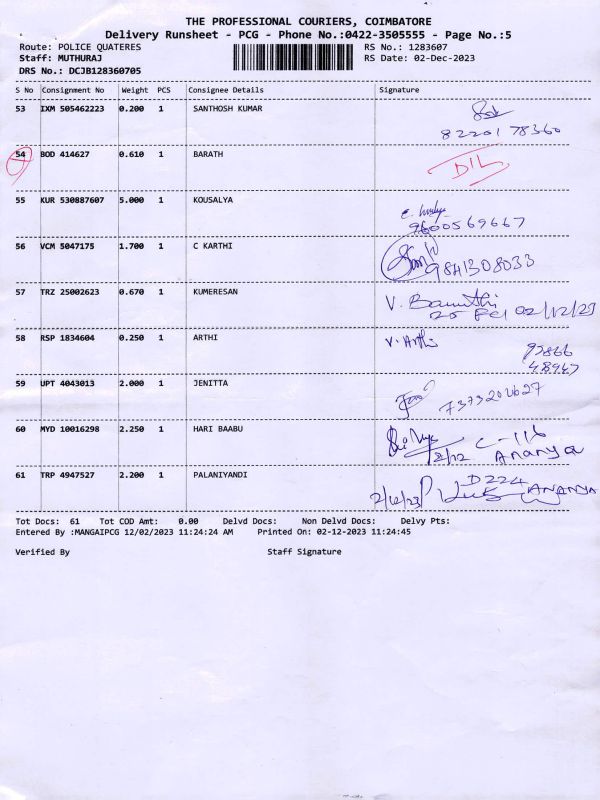 THE PROFESSIONAL COURIERS, COIMBATORE
Delivery Runsheet - PCG - Phone No.:0422-3505555 - Page No.:5
Route: POLICE QUATERES RS No.: 1283607
Staff: MUTHURAJ RS Date: 02-Dec-2023
DRS No.: DCJB128360705
S No Consignment No Weight PCS Consignee Details Signature
53 IXM 505462223 0.200 1 SANTHOSH KUMAR
8220178360
54 BOD 414627 0.610 1 BARATH DIL
55 KUR 530887607 5.000 1 KOUSALYA
9600569667
56 VCM 5047175 1.700 1 C KARTHI
9841308033
57 TRZ 25002623 0.670 1 KUMERESAN V.
02/12/23
58 RSP 1834604 0.250 1 ARTHI V. Arthi
59 UPT 4043013 2.000 1 JENITTA
60 MYD 10016298 2.250 1 HARI BAABU C-116
2/12 Ananya
61 TRP 4947527 2.200 1 PALANIYANDI D224
2/12/23 ANANYA
Tot Docs: 61 Tot COD Amt: 0.00 Delvd Docs: Non Delvd Docs: Delvy Pts:
Entered By :MANGAIPCG 12/02/2023 11:24:24 AM Printed On: 02-12-2023 11:24:45
Verified By Staff Signature